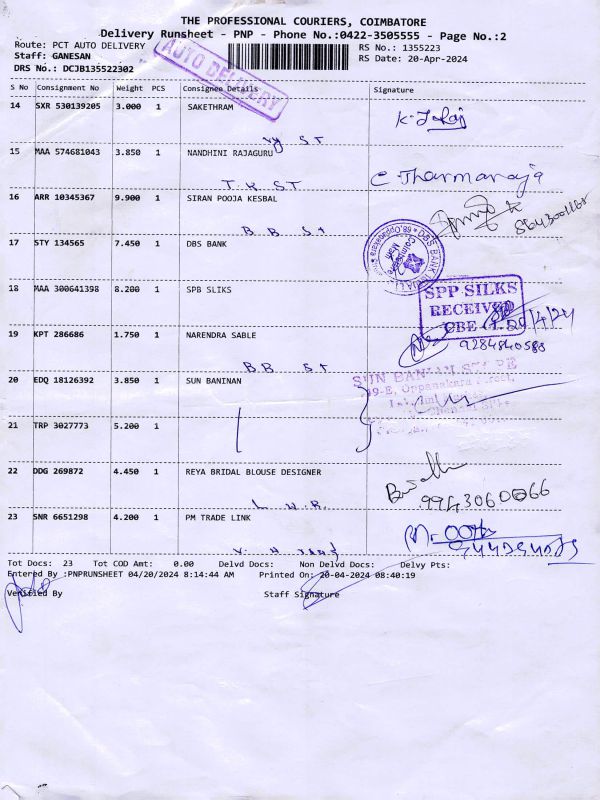 THE PROFESSIONAL COURIERS, COIMBATORE
Delivery Runsheet - PNP - Phone No.:0422-3505555 - Page No.:2
Route: PCT AUTO DELIVERY
RS No.: 1355223
Staff: GANESAN
RS Date: 20-Apr-2024
DRS No.: DCJB135522302
AUTO DELIVERY
S No Consignment No Weight PCS Consignee Details Signature
14 SXR 530139205 3.000 1 SAKETHRAM
S T
15 MAA 574681043 3.850 1 NANDHINI RAJAGURU
T. K S.T C. Tharmaraja
16 ARR 10345367 9.900 1 SIRAN POOJA KESBAL
B B St
17 STY 134565 7.450 1 DBS BANK
18 MAA 300641398 8.200 1 SPB SLIKS
SPP SILKS
RECEIVED
CBE
19 KPT 286686 1.750 1 NARENDRA SABLE
9284840588
B.B. S T
20 EDQ 18126392 3.850 1 SUN BANINAN
21 TRP 3027773 5.200 1
22 DDG 269872 4.450 1 REYA BRIDAL BLOUSE DESIGNER
23 SNR 6651298 4.200 1 PM TRADE LINK
Tot Docs: 23 Tot COD Amt: 0.00 Delvd Docs: Non Delvd Docs: Delvy Pts:
Entered By :PNPRUNSHEET 04/20/2024 8:14:44 AM Printed On: 20-04-2024 08:40:19
Verified By Staff Signature